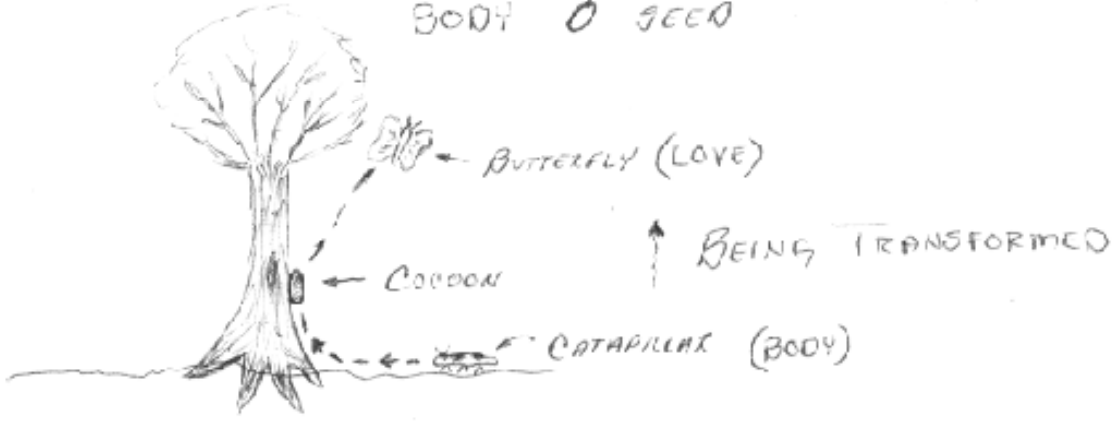 BODY O SEED
BUTTERFLY (LOVE)
BEING TRANSFORMED
COCOON
CATAPILLAR (BODY)